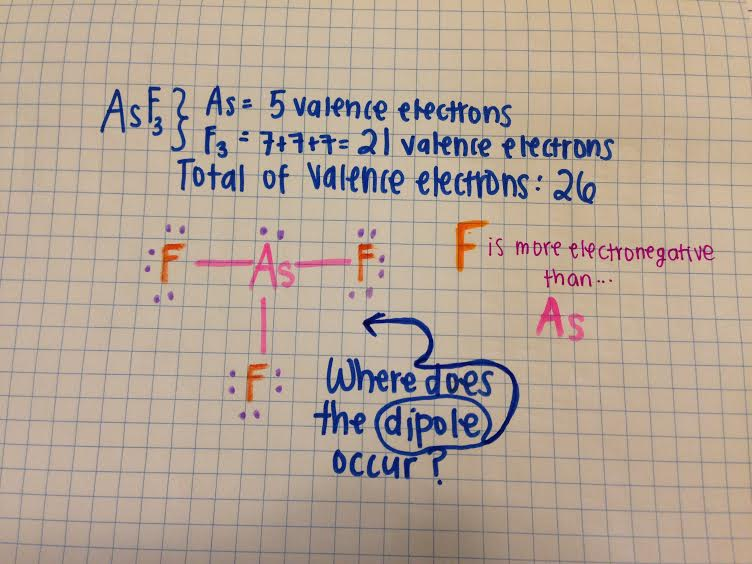 AsF₃ } As = 5 valence electrons
F₃ = 7+7+7 = 21 valence electrons
Total of valence electrons: 26
F — As — F
F
F is more electronegative
than...
As
Where does
the dipole
occur?